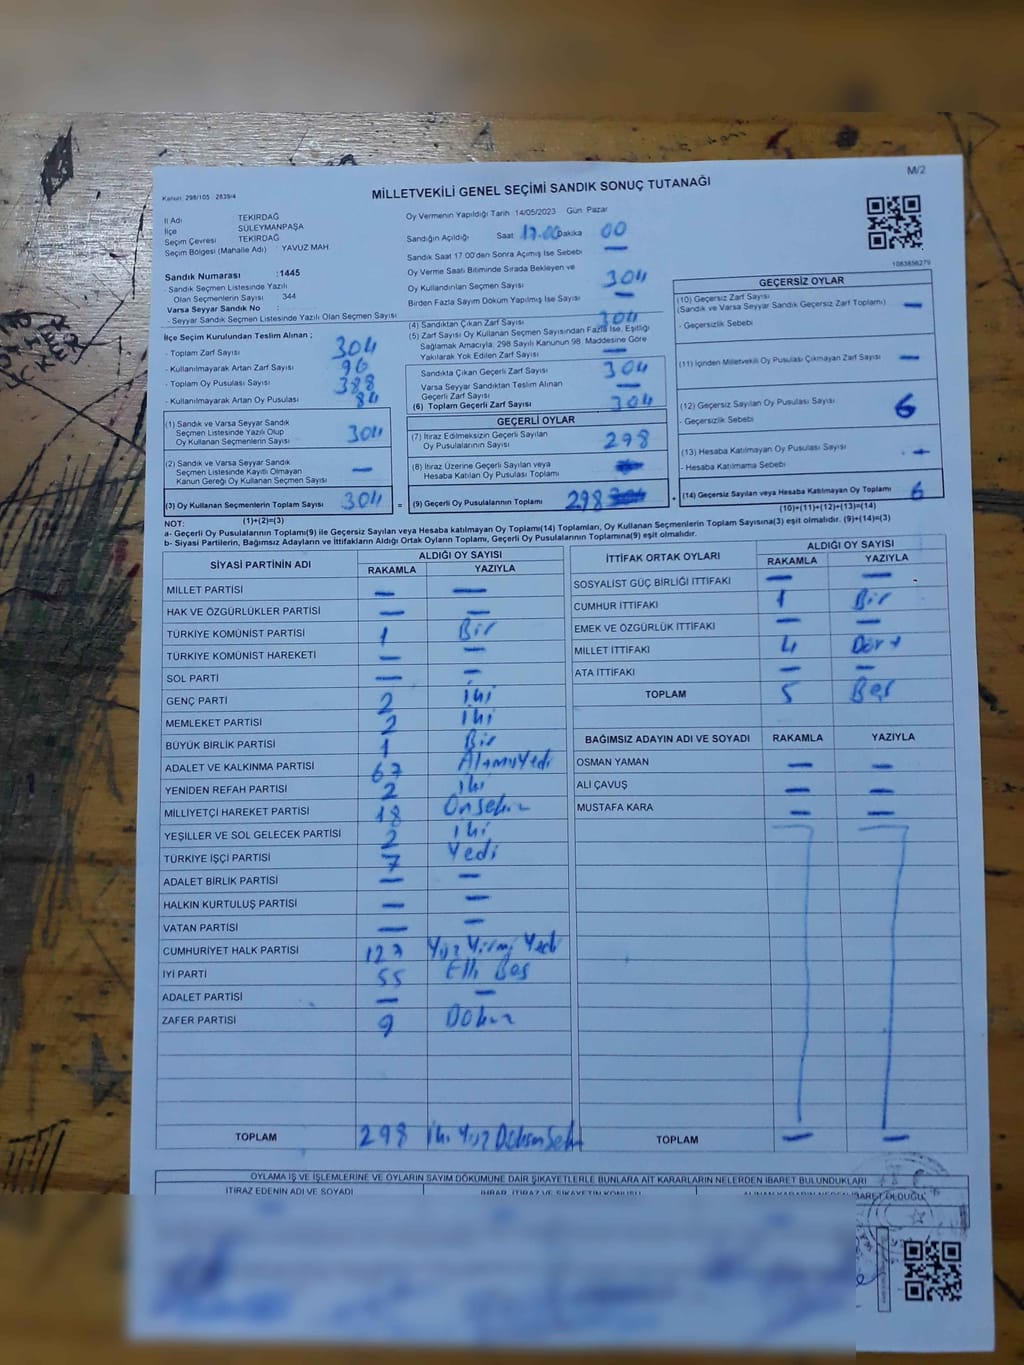 M/2
Kanun: 298/105 2839/4
MİLLETVEKİLİ GENEL SEÇİMİ SANDIK SONUÇ TUTANAĞI
İl Adı TEKİRDAĞ
İlçe SÜLEYMANPAŞA
Seçim Çevresi TEKİRDAĞ
Seçim Bölgesi (Mahalle Adı) YAVUZ MAH.
Sandık Numarası :1445
- Sandık Seçmen Listesinde Yazılı
Olan Seçmenlerin Sayısı 344
Varsa Seyyar Sandık No :
- Seyyar Sandık Seçmen Listesinde Yazılı Olan Seçmen Sayısı
İlçe Seçim Kurulundan Teslim Alınan ;
- Toplam Zarf Sayısı 304
- Kullanılmayarak Artan Zarf Sayısı 96
- Toplam Oy Pusulası Sayısı 388
- Kullanılmayarak Artan Oy Pusulası 84
(1) Sandık ve Varsa Seyyar Sandık
Seçmen Listesinde Yazılı Olup
Oy Kullanan Seçmenlerin Sayısı 304
(2) Sandık ve Varsa Seyyar Sandık
Seçmen Listesinde Kayıtlı Olmayan
Kanun Gereği Oy Kullanan Seçmen Sayısı —
(3) Oy Kullanan Seçmenlerin Toplam Sayısı 304 =
Oy Vermenin Yapıldığı Tarih 14/05/2023 Gün Pazar
Sandığın Açıldığı Saat 17.00 Dakika 00
Sandık Saat 17 00'den Sonra Açılmış İse Sebebi —
Oy Verme Saati Bitiminde Sırada Bekleyen ve
Oy Kullandırılan Seçmen Sayısı 304
Birden Fazla Sayım Döküm Yapılmış İse Sayısı —
(4) Sandıktan Çıkan Zarf Sayısı 304
(5) Zarf Sayısı Oy Kullanan Seçmen Sayısından Fazla İse, Eşitliği
Sağlamak Amacıyla, 298 Sayılı Kanunun 98. Maddesine Göre
Yakılarak Yok Edilen Zarf Sayısı —
Sandıkta Çıkan Geçerli Zarf Sayısı 304
Varsa Seyyar Sandıktan Teslim Alınan
Geçerli Zarf Sayısı —
(6) Toplam Geçerli Zarf Sayısı 304
GEÇERLİ OYLAR
(7) İtiraz Edilmeksizin Geçerli Sayılan
Oy Pusulalarının Sayısı 298
(8) İtiraz Üzerine Geçerli Sayılan veya
Hesaba Katılan Oy Pusulası Toplamı
(9) Geçerli Oy Pusulalarının Toplamı 298 +
1083856279
GEÇERSİZ OYLAR
(10) Geçersiz Zarf Sayısı
(Sandık ve Varsa Seyyar Sandık Geçersiz Zarf Toplamı) —
- Geçersizlik Sebebi
(11) İçinden Milletvekili Oy Pusulası Çıkmayan Zarf Sayısı —
(12) Geçersiz Sayılan Oy Pusulası Sayısı 6
- Geçersizlik Sebebi
(13) Hesaba Katılmayan Oy Pusulası Sayısı —
- Hesaba Katılmama Sebebi
(14) Geçersiz Sayılan veya Hesaba Katılmayan Oy Toplamı 6
NOT: (1)+(2)=(3) (10)+(11)+(12)+(13)=(14)
a- Geçerli Oy Pusulalarının Toplamı(9) ile Geçersiz Sayılan veya Hesaba katılmayan Oy Toplamı(14) Toplamları, Oy Kullanan Seçmenlerin Toplam Sayısına(3) eşit olmalıdır. (9)+(14)=(3)
b- Siyasi Partilerin, Bağımsız Adayların ve İttifakların Aldığı Ortak Oyların Toplamı, Geçerli Oy Pusulalarının Toplamına(9) eşit olmalıdır.
SİYASİ PARTİNİN ADI ALDIĞI OY SAYISI
RAKAMLA YAZIYLA
MİLLET PARTİSİ — —
HAK VE ÖZGÜRLÜKLER PARTİSİ — —
TÜRKİYE KOMÜNİST PARTİSİ 1 Bir
TÜRKİYE KOMÜNİST HAREKETİ — —
SOL PARTİ — —
GENÇ PARTİ 2 iki
MEMLEKET PARTİSİ 2 iki
BÜYÜK BİRLİK PARTİSİ 1 Bir
ADALET VE KALKINMA PARTİSİ 67 Altmışyedi
YENİDEN REFAH PARTİSİ 2 iki
MİLLİYETÇİ HAREKET PARTİSİ 18 Onsekiz
YEŞİLLER VE SOL GELECEK PARTİSİ 2 iki
TÜRKİYE İŞÇİ PARTİSİ 7 Yedi
ADALET BİRLİK PARTİSİ — —
HALKIN KURTULUŞ PARTİSİ — —
VATAN PARTİSİ — —
CUMHURİYET HALK PARTİSİ 127 Yüz Yirmi Yedi
İYİ PARTİ 55 Elli Beş
ADALET PARTİSİ — —
ZAFER PARTİSİ 9 Dokuz
TOPLAM 298 iki Yüz Doksan Sekiz
İTTİFAK ORTAK OYLARI ALDIĞI OY SAYISI
RAKAMLA YAZIYLA
SOSYALİST GÜÇ BİRLİĞİ İTTİFAKI — —
CUMHUR İTTİFAKI 1 Bir
EMEK VE ÖZGÜRLÜK İTTİFAKI — —
MİLLET İTTİFAKI 4 Dört
ATA İTTİFAKI — —
TOPLAM 5 Beş
BAĞIMSIZ ADAYIN ADI VE SOYADI RAKAMLA YAZIYLA
OSMAN YAMAN — —
ALİ ÇAVUŞ — —
MUSTAFA KARA — —
TOPLAM — —
OYLAMA İŞ VE İŞLEMLERİNE VE OYLARIN SAYIM DÖKÜMÜNE DAİR ŞİKAYETLERLE BUNLARA AİT KARARLARIN NELERDEN İBARET BULUNDUKLARI
İTİRAZ EDENİN ADI VE SOYADI İHBAR, İTİRAZ VE ŞİKAYETİN KONUSU